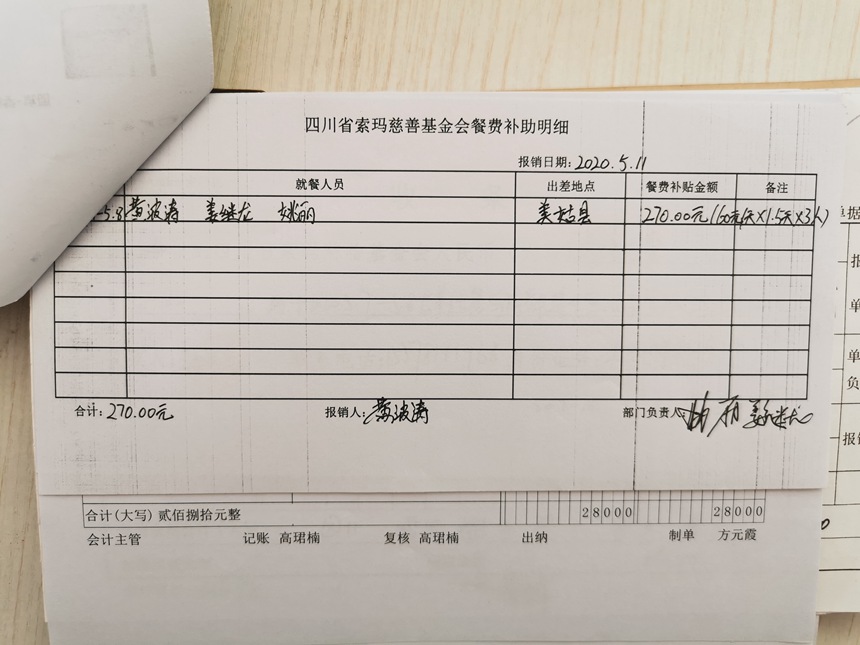 四川省索玛慈善基金会餐费补助明细
报销日期: 2020.5.11
就餐人员 出差地点 餐费补贴金额 备注
5.8 黄波涛 姜继龙 姚丽 美姑县 270.00元(60元/天×1.5天×3人)
合计: 270.00元 报销人: 黄波涛 部门负责人:
合计(大写) 贰佰捌拾元整 28000 28000
会计主管 记账 高珺楠 复核 高珺楠 出纳 制单 方元霞
单据
报
单
单
负
报销